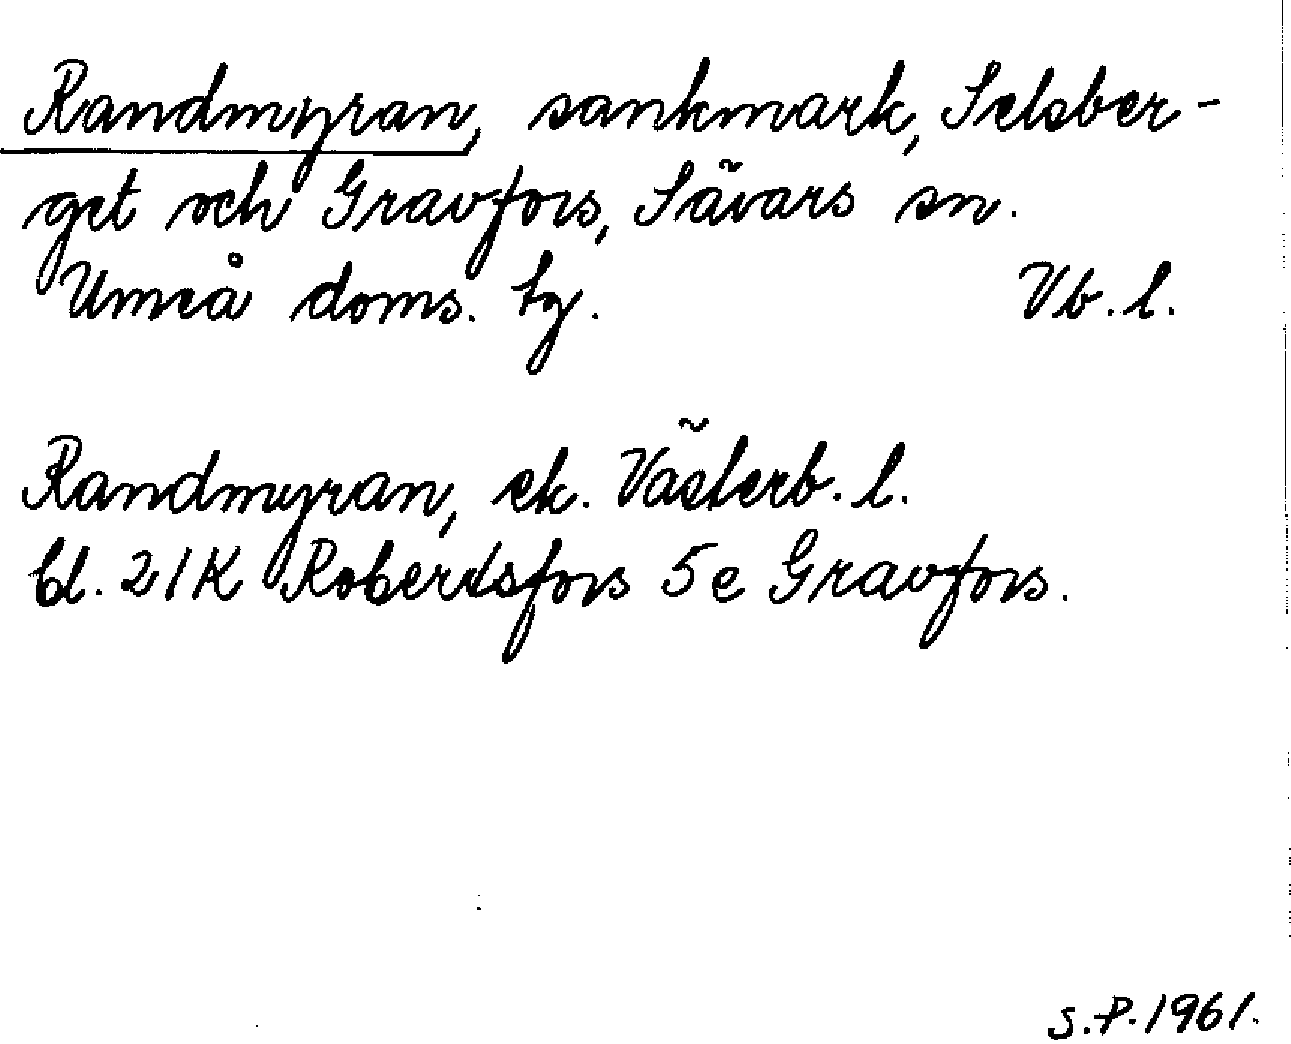 Randmyran, sankmark, Selsber-
get och Gravfors, Sävars sn.
Umeå doms. tg. Vb. l.
Randmyran, ek. Västerb. l.
bl. 21K Robertsfors 5e Gravfors.
S.P. 1961.